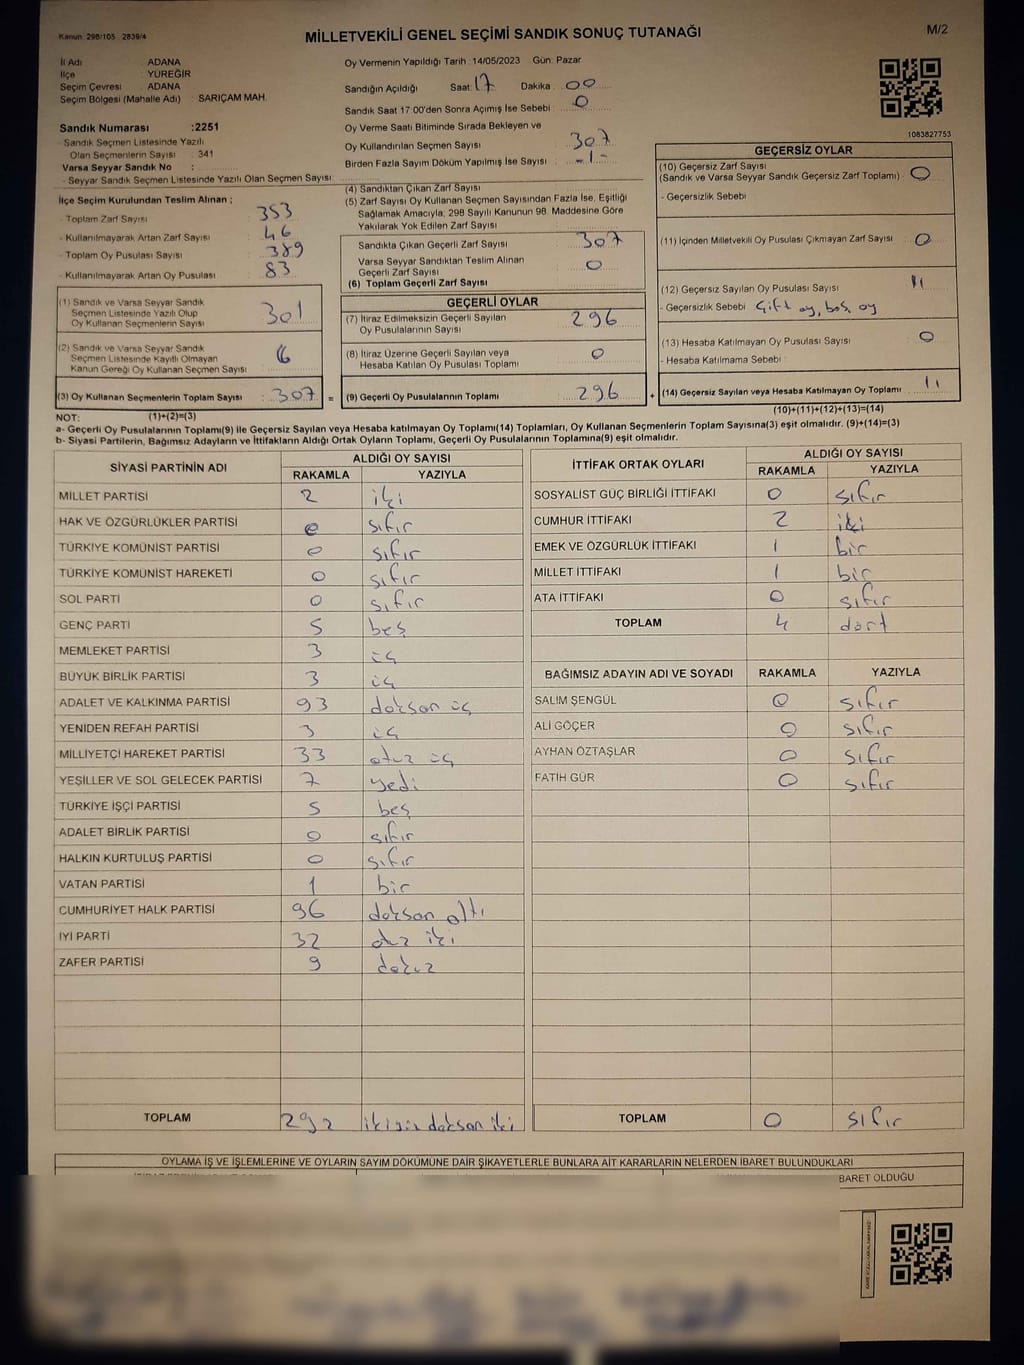 Kanun 298/105 2839/4
MİLLETVEKİLİ GENEL SEÇİMİ SANDIK SONUÇ TUTANAĞI
M/2
İl Adı ADANA
İlçe YÜREĞİR
Seçim Çevresi ADANA
Seçim Bölgesi (Mahalle Adı) SARIÇAM MAH.
Sandık Numarası :2251
- Sandık Seçmen Listesinde Yazılı
Olan Seçmenlerin Sayısı : 341
Varsa Seyyar Sandık No :
- Seyyar Sandık Seçmen Listesinde Yazılı Olan Seçmen Sayısı:
Oy Vermenin Yapıldığı Tarih : 14/05/2023 Gün: Pazar
Sandığın Açıldığı Saat: 17 Dakika : 00
Sandık Saat 17:00'den Sonra Açımış İse Sebebi : 0
Oy Verme Saati Bitiminde Sırada Bekleyen ve
Oy Kullandırılan Seçmen Sayısı : 307
Birden Fazla Sayım Döküm Yapılmış İse Sayısı : -1-
1083827753
İlçe Seçim Kurulundan Teslim Alınan ;
- Toplam Zarf Sayısı : 353
- Kullanılmayarak Artan Zarf Sayısı : 46
- Toplam Oy Pusulası Sayısı : 389
- Kullanılmayarak Artan Oy Pusulası : 83
(1) Sandık ve Varsa Seyyar Sandık
Seçmen Listesinde Yazılı Olup
Oy Kullanan Seçmenlerin Sayısı : 301
(2) Sandık ve Varsa Seyyar Sandık
Seçmen Listesinde Kayıtlı Olmayan
Kanun Gereği Oy Kullanan Seçmen Sayısı : 6
(3) Oy Kullanan Seçmenlerin Toplam Sayısı : 307 =
(4) Sandıktan Çıkan Zarf Sayısı
(5) Zarf Sayısı Oy Kullanan Seçmen Sayısından Fazla İse, Eşitliği
Sağlamak Amacıyla, 298 Sayılı Kanunun 98. Maddesine Göre
Yakılarak Yok Edilen Zarf Sayısı
Sandıkta Çıkan Geçerli Zarf Sayısı : 307
Varsa Seyyar Sandıktan Teslim Alınan
Geçerli Zarf Sayısı : 0
(6) Toplam Geçerli Zarf Sayısı
GEÇERLİ OYLAR
(7) İtiraz Edilmeksizin Geçerli Sayılan
Oy Pusulalarının Sayısı : 296
(8) İtiraz Üzerine Geçerli Sayılan veya
Hesaba Katılan Oy Pusulası Toplamı : 0
(9) Geçerli Oy Pusulalarının Toplamı : 296 +
GEÇERSİZ OYLAR
(10) Geçersiz Zarf Sayısı
(Sandık ve Varsa Seyyar Sandık Geçersiz Zarf Toplamı) : 0
- Geçersizlik Sebebi
(11) İçinden Milletvekili Oy Pusulası Çıkmayan Zarf Sayısı : 0
(12) Geçersiz Sayılan Oy Pusulası Sayısı : 11
- Geçersizlik Sebebi : çift oy, boş oy
(13) Hesaba Katılmayan Oy Pusulası Sayısı : 0
- Hesaba Katılmama Sebebi :
(14) Geçersiz Sayılan veya Hesaba Katılmayan Oy Toplamı : 11
NOT: (1)+(2)=(3) (10)+(11)+(12)+(13)=(14)
a- Geçerli Oy Pusulalarının Toplamı(9) ile Geçersiz Sayılan veya Hesaba katılmayan Oy Toplamı(14) Toplamları, Oy Kullanan Seçmenlerin Toplam Sayısına(3) eşit olmalıdır. (9)+(14)=(3)
b- Siyasi Partilerin, Bağımsız Adayların ve İttifakların Aldığı Ortak Oyların Toplamı, Geçerli Oy Pusulalarının Toplamına(9) eşit olmalıdır.
SİYASİ PARTİNİN ADI ALDIĞI OY SAYISI
RAKAMLA YAZIYLA
MİLLET PARTİSİ 2 iki
HAK VE ÖZGÜRLÜKLER PARTİSİ 0 sıfır
TÜRKİYE KOMÜNİST PARTİSİ 0 sıfır
TÜRKİYE KOMÜNİST HAREKETİ 0 sıfır
SOL PARTİ 0 sıfır
GENÇ PARTİ 5 beş
MEMLEKET PARTİSİ 3 üç
BÜYÜK BİRLİK PARTİSİ 3 üç
ADALET VE KALKINMA PARTİSİ 93 doksan üç
YENİDEN REFAH PARTİSİ 3 üç
MİLLİYETÇİ HAREKET PARTİSİ 33 otuz üç
YEŞİLLER VE SOL GELECEK PARTİSİ 7 yedi
TÜRKİYE İŞÇİ PARTİSİ 5 beş
ADALET BİRLİK PARTİSİ 0 sıfır
HALKIN KURTULUŞ PARTİSİ 0 sıfır
VATAN PARTİSİ 1 bir
CUMHURİYET HALK PARTİSİ 96 doksan altı
İYİ PARTİ 32 otuz iki
ZAFER PARTİSİ 9 dokuz
TOPLAM 292 ikiyüz doksan iki
İTTİFAK ORTAK OYLARI ALDIĞI OY SAYISI
RAKAMLA YAZIYLA
SOSYALİST GÜÇ BİRLİĞİ İTTİFAKI 0 sıfır
CUMHUR İTTİFAKI 2 iki
EMEK VE ÖZGÜRLÜK İTTİFAKI 1 bir
MİLLET İTTİFAKI 1 bir
ATA İTTİFAKI 0 sıfır
TOPLAM 4 dört
BAĞIMSIZ ADAYIN ADI VE SOYADI RAKAMLA YAZIYLA
SALİM ŞENGÜL 0 sıfır
ALİ GÖÇER 0 sıfır
AYHAN ÖZTAŞLAR 0 sıfır
FATİH GÜR 0 sıfır
TOPLAM 0 sıfır
OYLAMA İŞ VE İŞLEMLERİNE VE OYLARIN SAYIM DÖKÜMÜNE DAİR ŞİKAYETLERLE BUNLARA AİT KARARLARIN NELERDEN İBARET BULUNDUKLARI
BARET OLDUĞU